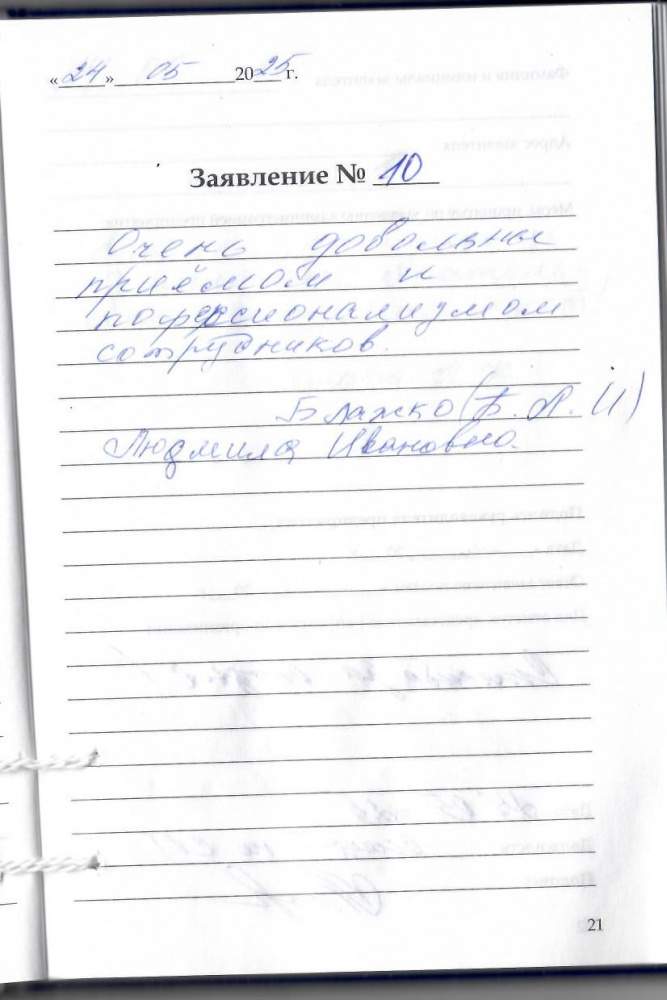 «24» 05 2025 г.
Заявление № 10
Очень довольны
приёмом и
пофессионализмом
сотрудников.
Блажко (Б. Л. И)
Людмила Ивановна.
21